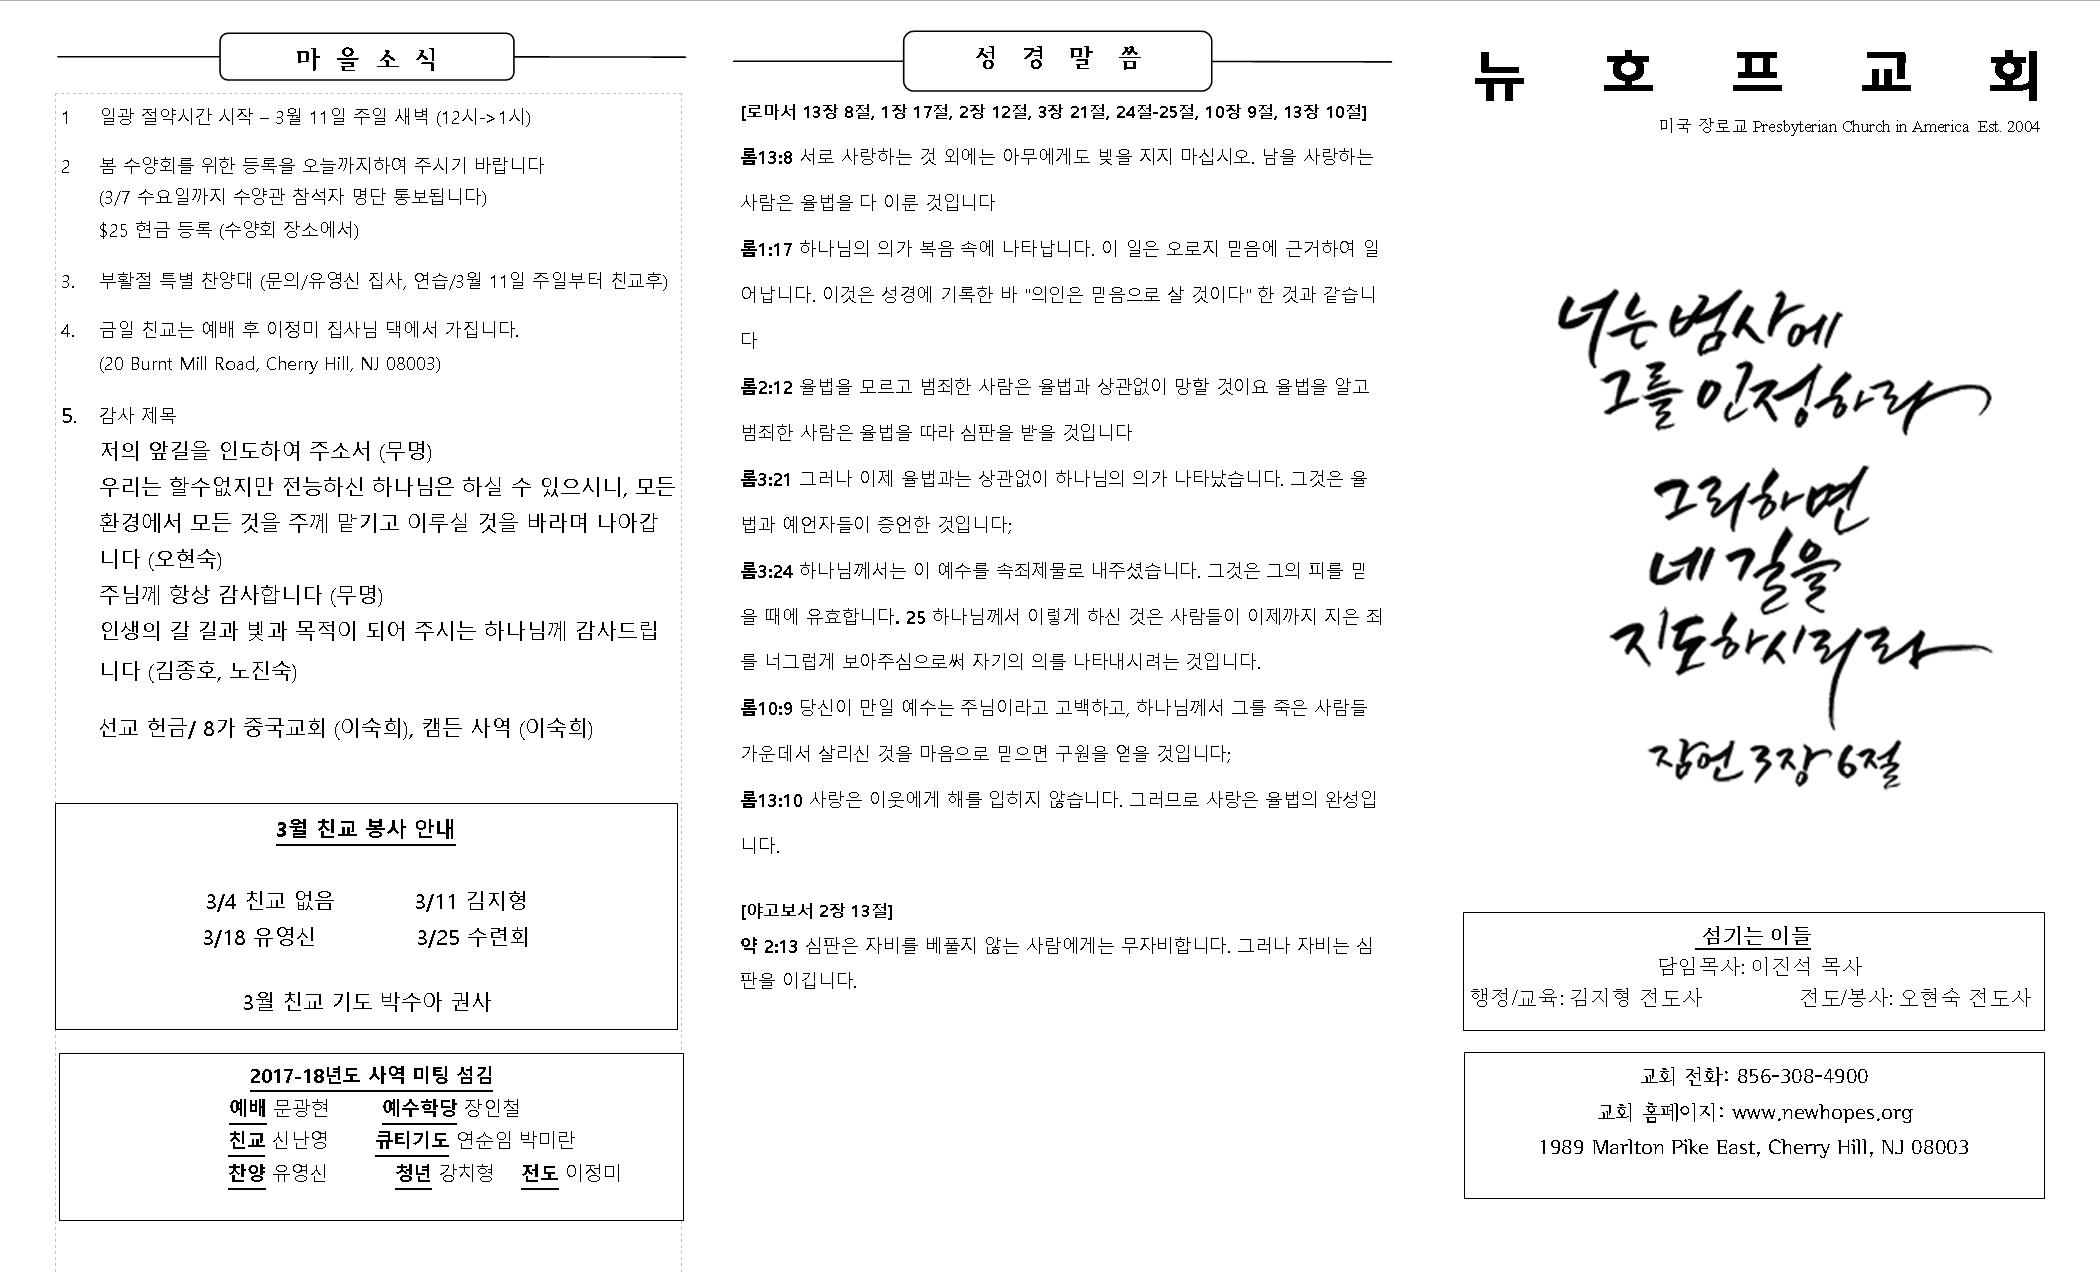 마 을 소 식
1 일광 절약시간 시작 – 3월 11일 주일 새벽 (12시->1시)
2 봄 수양회를 위한 등록을 오늘까지하여 주시기 바랍니다
(3/7 수요일까지 수양관 참석자 명단 통보됩니다)
$25 현금 등록 (수양회 장소에서)
3. 부활절 특별 찬양대 (문의/유영신 집사, 연습/3월 11일 주일부터 친교후)
4. 금일 친교는 예배 후 이정미 집사님 댁에서 가집니다.
(20 Burnt Mill Road, Cherry Hill, NJ 08003)
5. 감사 제목
저의 앞길을 인도하여 주소서 (무명)
우리는 할수없지만 전능하신 하나님은 하실 수 있으시니, 모든
환경에서 모든 것을 주께 맡기고 이루실 것을 바라며 나아갑
니다 (오현숙)
주님께 항상 감사합니다 (무명)
인생의 갈 길과 빛과 목적이 되어 주시는 하나님께 감사드립
니다 (김종호, 노진숙)
선교 헌금/ 8가 중국교회 (이숙희), 캠든 사역 (이숙희)
3월 친교 봉사 안내
3/4 친교 없음 3/11 김지형
3/18 유영신 3/25 수련회
3월 친교 기도 박수아 권사
2017-18년도 사역 미팅 섬김
예배 문광현 예수학당 장인철
친교 신난영 큐티기도 연순임 박미란
찬양 유영신 청년 강치형 전도 이정미
성 경 말 씀
[로마서 13장 8절, 1장 17절, 2장 12절, 3장 21절, 24절-25절, 10장 9절, 13장 10절]
롬13:8 서로 사랑하는 것 외에는 아무에게도 빚을 지지 마십시오. 남을 사랑하는
사람은 율법을 다 이룬 것입니다
롬1:17 하나님의 의가 복음 속에 나타납니다. 이 일은 오로지 믿음에 근거하여 일
어납니다. 이것은 성경에 기록한 바 "의인은 믿음으로 살 것이다" 한 것과 같습니
다
롬2:12 율법을 모르고 범죄한 사람은 율법과 상관없이 망할 것이요 율법을 알고
범죄한 사람은 율법을 따라 심판을 받을 것입니다
롬3:21 그러나 이제 율법과는 상관없이 하나님의 의가 나타났습니다. 그것은 율
법과 예언자들이 증언한 것입니다;
롬3:24 하나님께서는 이 예수를 속죄제물로 내주셨습니다. 그것은 그의 피를 믿
을 때에 유효합니다. 25 하나님께서 이렇게 하신 것은 사람들이 이제까지 지은 죄
를 너그럽게 보아주심으로써 자기의 의를 나타내시려는 것입니다.
롬10:9 당신이 만일 예수는 주님이라고 고백하고, 하나님께서 그를 죽은 사람들
가운데서 살리신 것을 마음으로 믿으면 구원을 얻을 것입니다;
롬13:10 사랑은 이웃에게 해를 입히지 않습니다. 그러므로 사랑은 율법의 완성입
니다.
[야고보서 2장 13절]
약 2:13 심판은 자비를 베풀지 않는 사람에게는 무자비합니다. 그러나 자비는 심
판을 이깁니다.
뉴 호 프 교 회
미국 장로교 Presbyterian Church in America Est. 2004
너는 범사에
그를 인정하라
그리하면
네 길을
지도하시리라
잠언 3장 6절
섬기는 이들
담임목사: 이진석 목사
행정/교육: 김지형 전도사 전도/봉사: 오현숙 전도사
교회 전화: 856-308-4900
교회 홈페이지: www.newhopes.org
1989 Marlton Pike East, Cherry Hill, NJ 08003